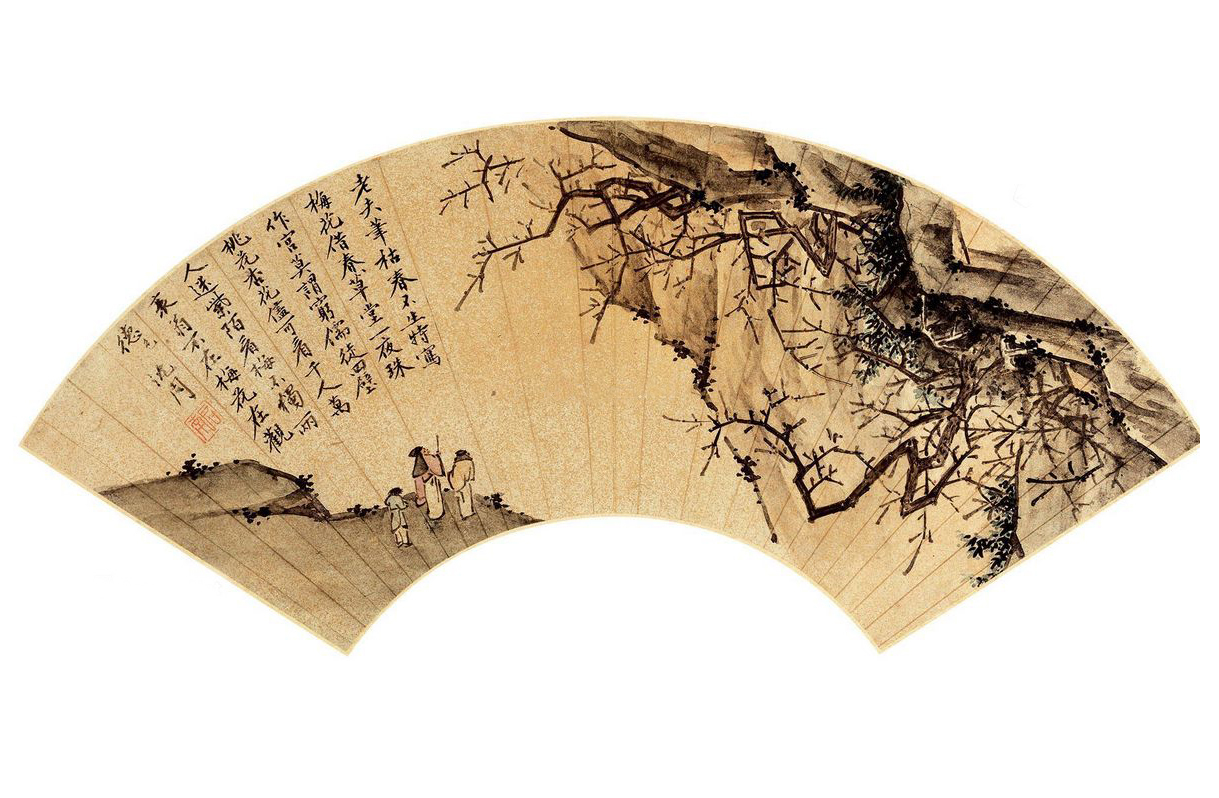 老夫筆枯春不生特寫
梅花借春草堂一夜珠
作宮莫謂窮儒徒四壁
桃花杏花儘可看千人萬
人迷紫陌看梅不獨兩
翁不在梅花在觀
德
沈周